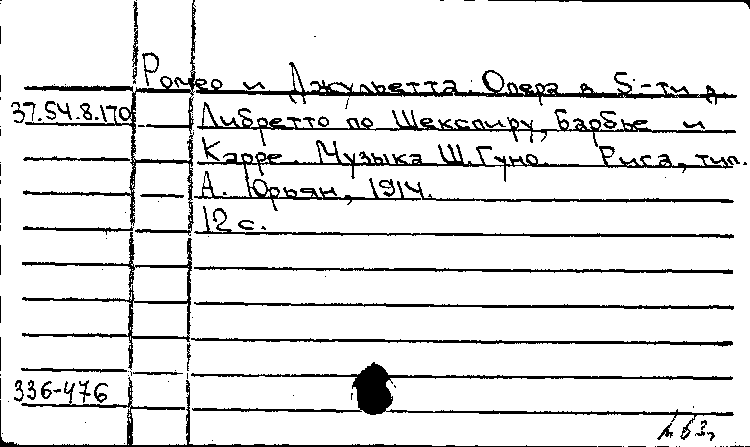 Ромео и Джульетта. Опера в 5-ти д.
37.54.8.170 Либретто по Шекспиру, Барбье и
Карре. Музыка Ш. Гуно. Рига, тип.
А. Юрьян, 1914.
12 с.
336-476